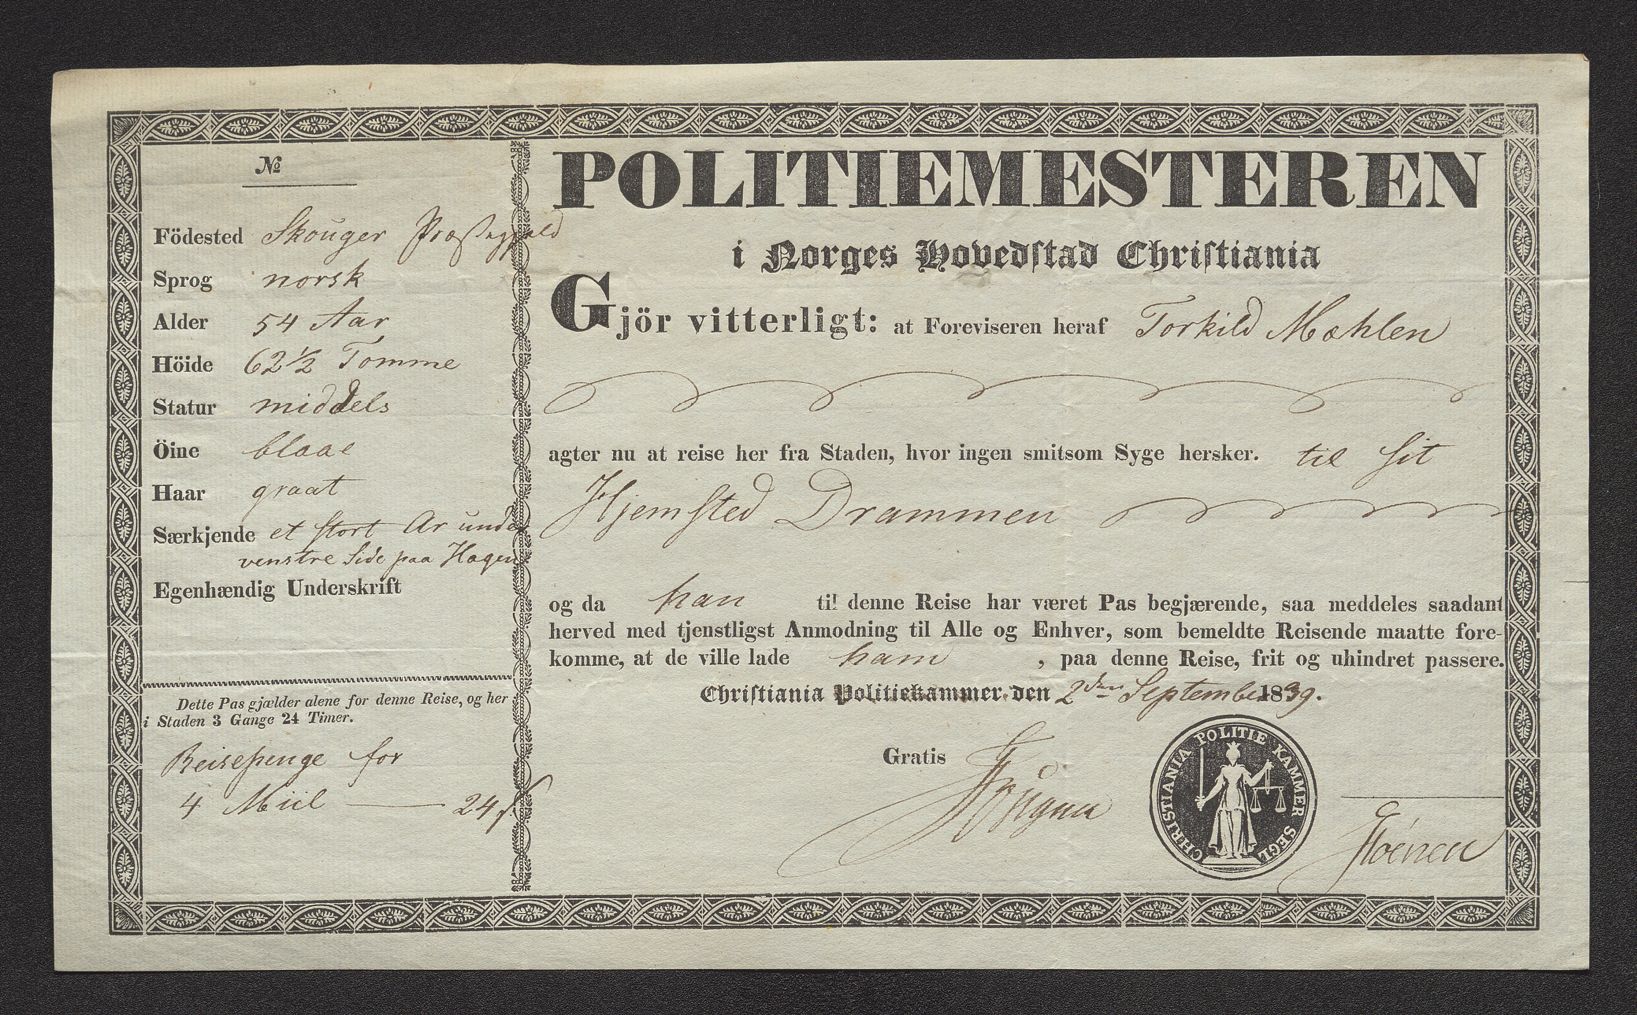 №
Födested Skouger Præstegjeld
Sprog norsk
Alder 54 Aar
Höide 62 1/2 Tomme
Statur middels
Öine blaae
Haar graat
Særkjende et stort Ar under
venstre Side paa Hagen
Egenhændig Underskrift
Dette Pas gjælder alene for denne Reise, og her
i Staden 3 Gange 24 Timer.
Reisepenge for
4 Miil — 24 ß
POLITIEMESTEREN
i Norges Hovedstad Christiania
Gjör vitterligt: at Foreviseren heraf Torkild Mæhlen
agter nu at reise her fra Staden, hvor ingen smitsom Syge hersker. til sit
Hjemsted Drammen
og da han til denne Reise har været Pas begjærende, saa meddeles saadant
herved med tjenstligst Anmodning til Alle og Enhver, som bemeldte Reisende maatte fore-
komme, at de ville lade ham, paa denne Reise, frit og uhindret passere.
Christiania Politiekammer den 2den September 1839.
Gratis
CHRISTIANIA POLITIE KAMMER SEGL